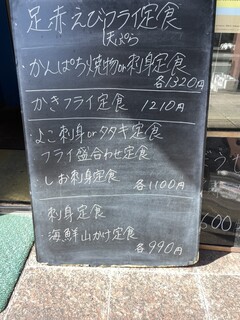 足赤えびフライ定食
天ぷら
・かんぱち焼物or刺身定食
各1320円
・かきフライ定食 1210円
・よこ刺身orタタキ定食
フライ盛合わせ定食
しお刺身定食
各1100円
・刺身定食
海鮮山かけ定食
各990円